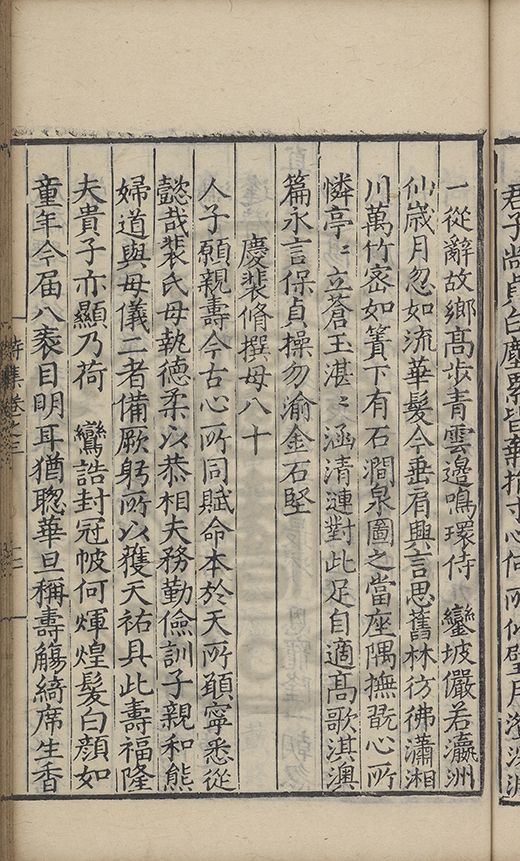 君子尚貞白塵累皆棄捐寸心何所似璧月澄深淵
一從辭故鄉髙步青雲邉鳴環侍 鑾坡儼若瀛洲
仙歳月忽如流華髮今垂肩興言思舊林彷彿瀟湘
川萬竹宻如簀下有石澗泉圖之當座隅撫翫心所
憐亭〻立蒼玉湛〻涵清漣對此足自適髙歌淇澳
篇永言保貞操勿渝金石堅
慶裴脩撰母八十
人子願親壽今古心所同賦命本於天所頋寧悉從
懿哉裴氏母執德柔以恭相夫務勤儉訓子親和熊
婦道與母儀二者備厥躬所以獲天祐具此壽福隆
夫貴子亦顯乃荷 鸞誥封冠帔何煇煌髮白顔如
童年今届八袠目明耳猶聦華旦稱壽觴綺席生香
詩集卷之三